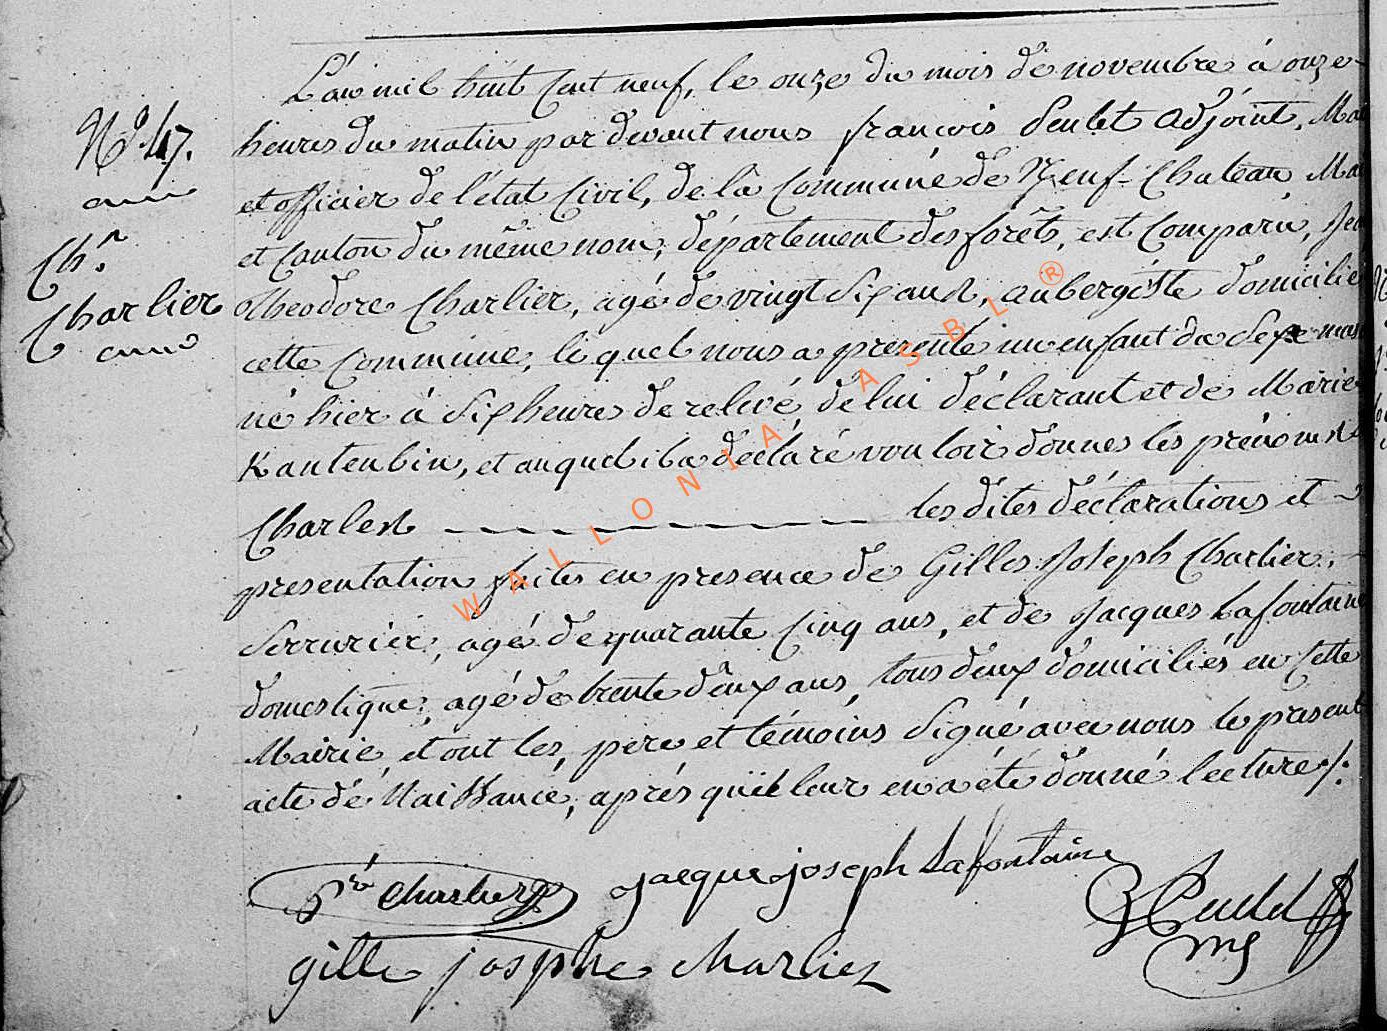 L'an mil huit Cent neuf, le onze du mois de novembre à onze
N.º 47.
heures du matin par devant nous françois adjoint, Mai
et officier de l'état Civil, de la Commune de Neuf-Chateau, Mai
Ch.ˢ
et Canton du même nom, département des forêts, est Comparu, Jea
Charlier
Theodore Charlier, agé de vingt Six ans, aubergiste domicilié
cette Commune, lequel nous a presenté un enfant du Sexe mas
né hier à Six heures de relevé, de lui déclarant et de Marie
Kautenbin, et auquel il a déclaré vouloir donner les prénoms de
Charles ----------- les dites déclarations et
presentation faites en presence de Gilles Joseph Charlier,
Serrurier, agé de quarante Cinq ans, et de Jacques Lafontaine
domestique, agé de trente deux ans, tous deux domiciliés en Cette
Mairie, et ont les, pere et témoins Signé avec nous le present
acte de Naissance, après qu'il leur en a été donné lecture ./.
Charlier Jacque joseph Lafontaine
gille josphe charliez
WALLONIA ASBL ®